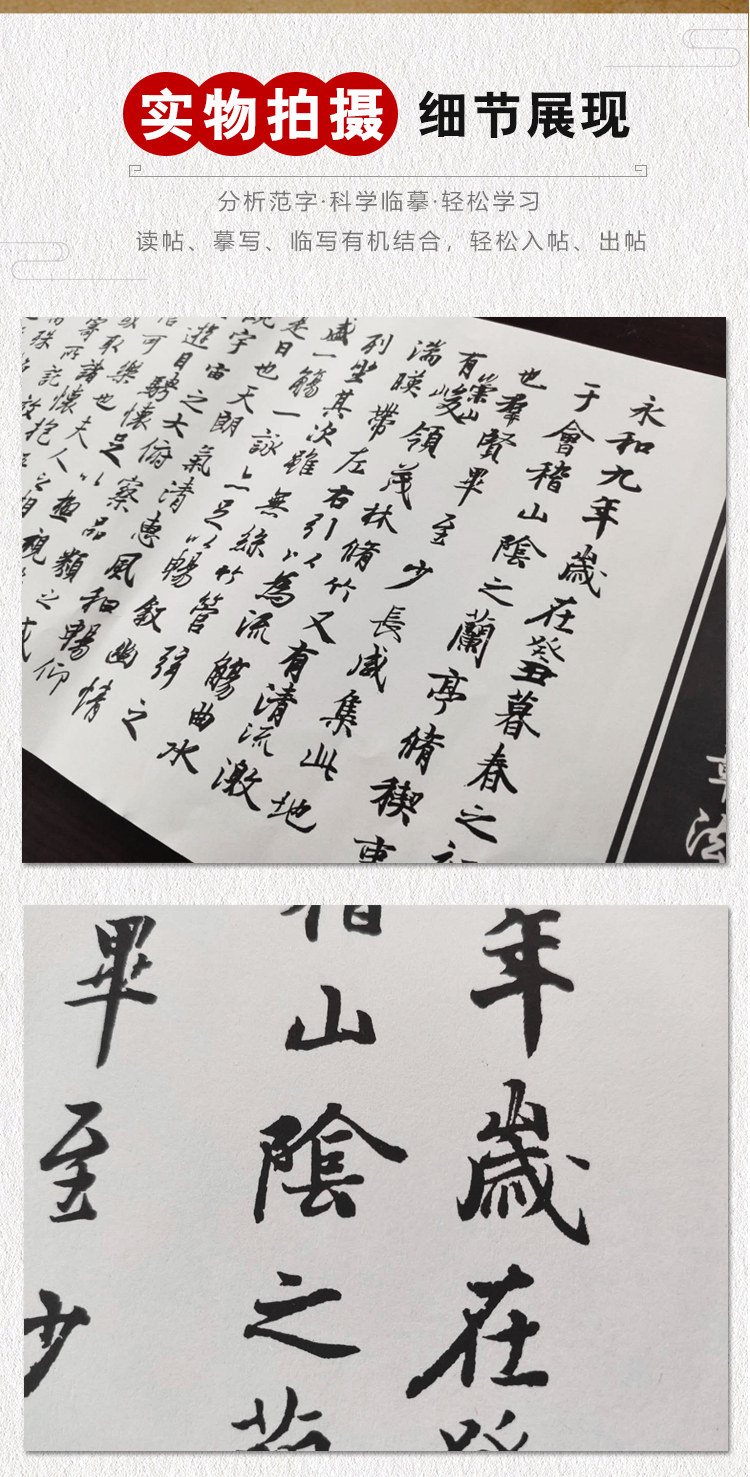 实物拍摄 细节展现
分析范字·科学临摹·轻松学习
读帖、摹写、临写有机结合，轻松入帖、出帖
永和九年歲在癸丑暮春之初
于會稽山陰之蘭亭脩稧事
也羣賢畢至少長咸集此地
有崇山峻領茂林脩竹又有清流激
湍暎帶左右引以為流觴曲水
列坐其次雖無絲竹管弦之
盛一觴一詠亦足以暢敘幽情
是日也天朗氣清惠風和暢仰
觀宇宙之大俯察品類之盛
遊目騁懷足以極視
可樂也夫人之相
取諸懷抱
寄所
章法
年歲在癸
稽山陰之蘭
畢至少